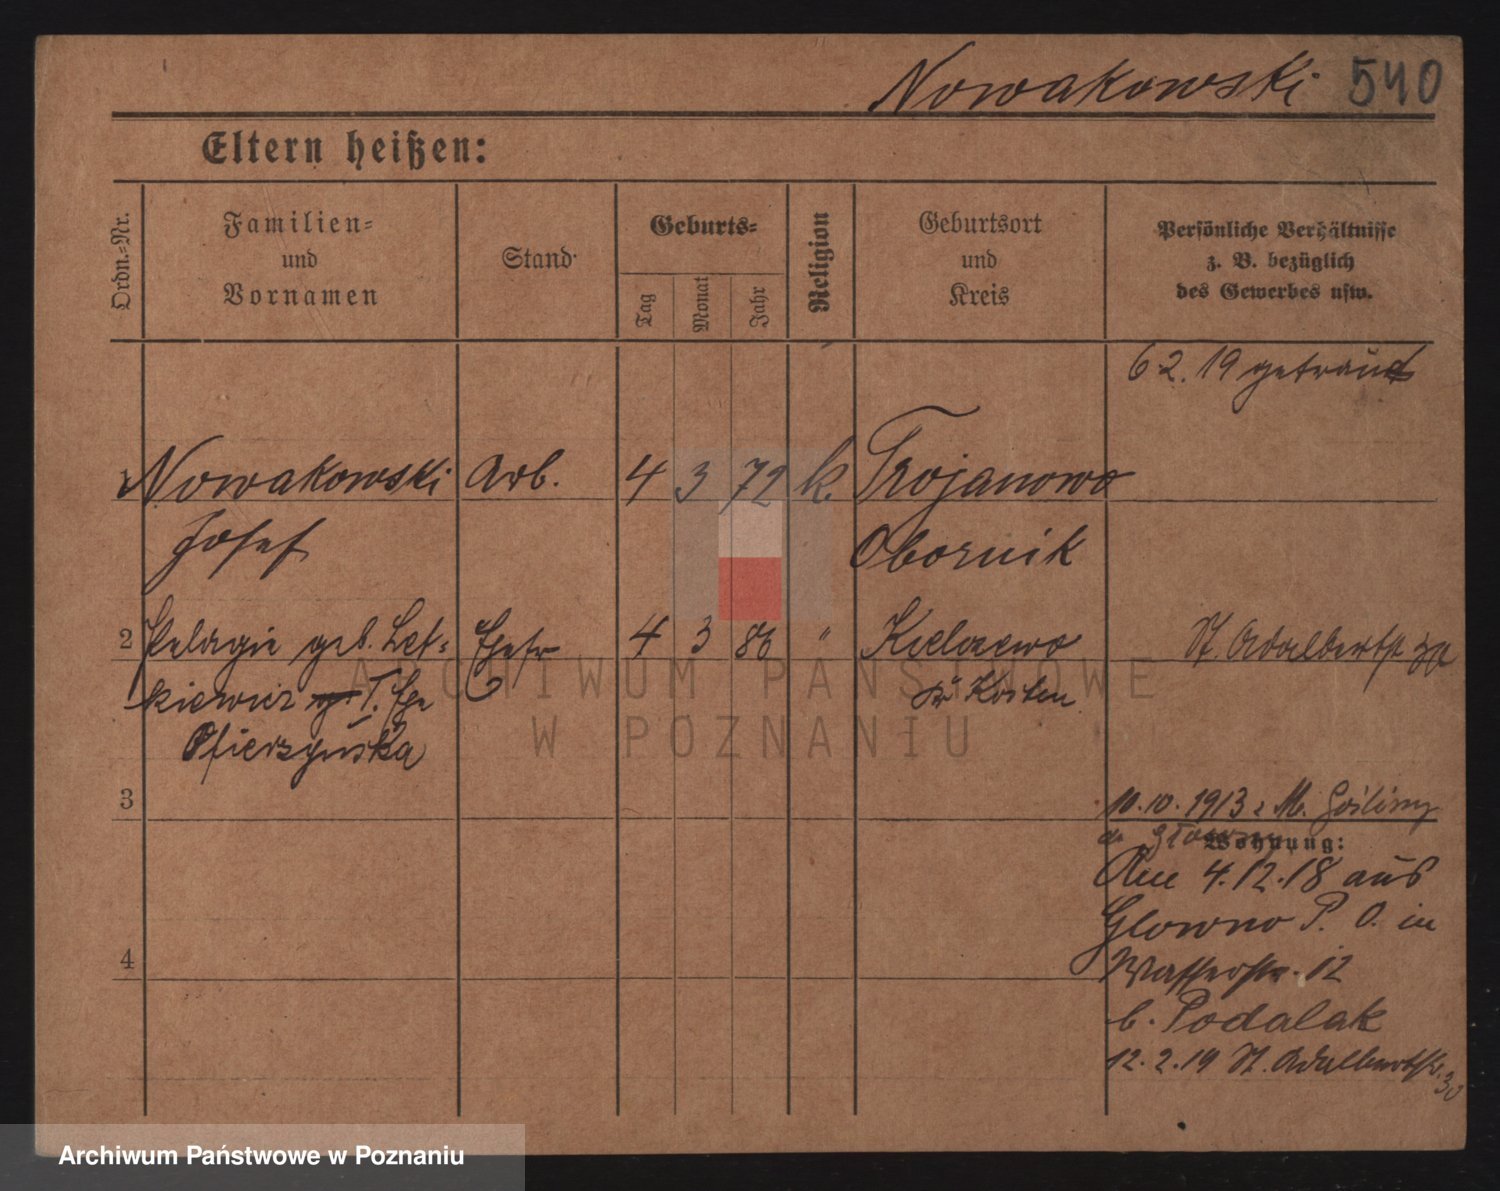 Nowakowski 540
Eltern heißen:
Ordn.-Nr.
Familien-
und
Vornamen
Stand
Geburts-
Tag
Monat
Jahr
Religion
Geburtsort
und
Kreis
Persönliche Verhältnisse
z. B. bezüglich
des Gewerbes usw.
6 2. 19 getraut
1 Nowakowski Arb. 4 3 72 k. Trojanowo
Josef Obornik
2 Pelagie geb. Let- Ehefr 4 3 86 " Kielczewo St. Adalbertstr 30
kiewicz I. Ehe Kr Kosten
3
10.10.1913 M. Goslin
Wohnung:
Am 4.12.18 aus
Glowno P. O. in
4 Wasserstr. 12
b. Podalak
12.2.19 St. Adalbertstr. 30
ARCHIWUM PAŃSTWOWE
W POZNANIU
Archiwum Państwowe w Poznaniu